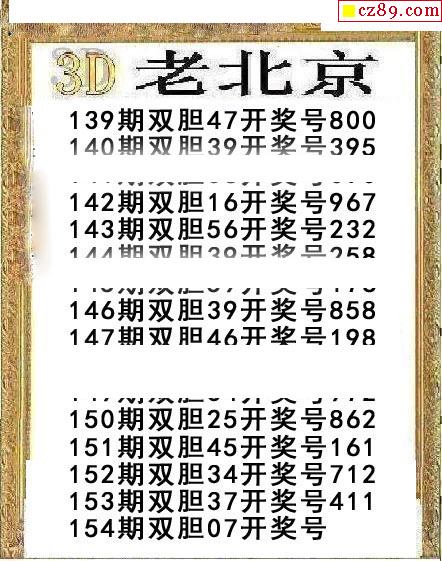 cz89.com
3D 老北京
139期双胆47开奖号800
140期双胆39开奖号395
142期双胆16开奖号967
143期双胆56开奖号232
144期双胆 开奖号258
146期双胆39开奖号858
147期双胆46开奖号198
150期双胆25开奖号862
151期双胆45开奖号161
152期双胆34开奖号712
153期双胆37开奖号411
154期双胆07开奖号